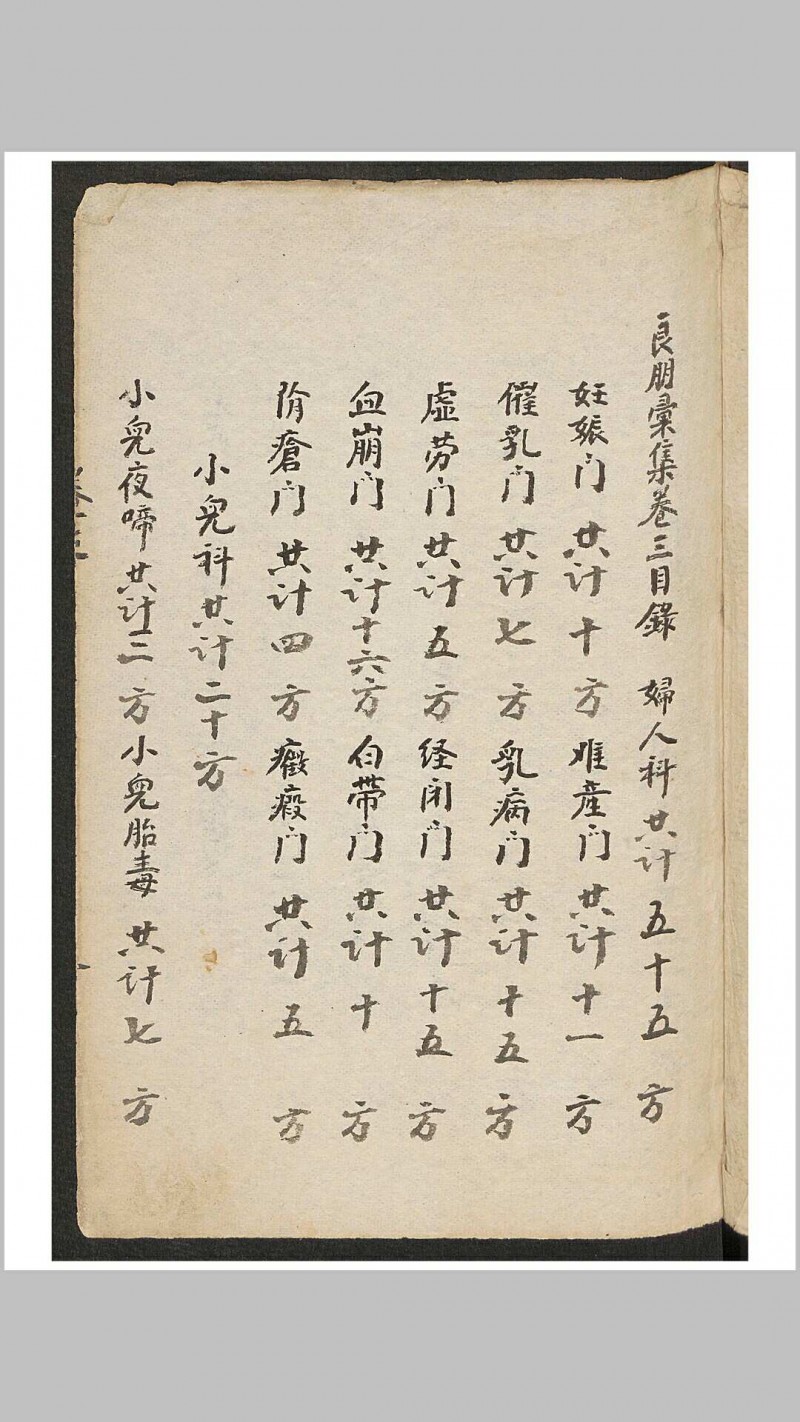 良朋彙集卷三目錄 婦人科共计五十五方
妊娠门共计十方 难産门共计十一方
催乳门共计七方 乳病门共计十五方
虚劳门共计五方 经闭门共计十五方
血崩门共计十六方 白带门共计十方
阴瘡门共计四方 癥瘕门共计五方
小兒科共计二十方
小兒夜啼共计二方 小兒胎毒共计七方